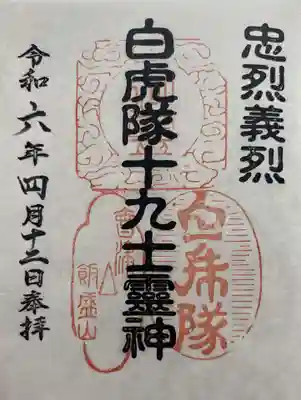 忠烈義烈
白虎隊十九士靈神
令和六年四月十二日奉拝
白虎隊
會津
飯盛山